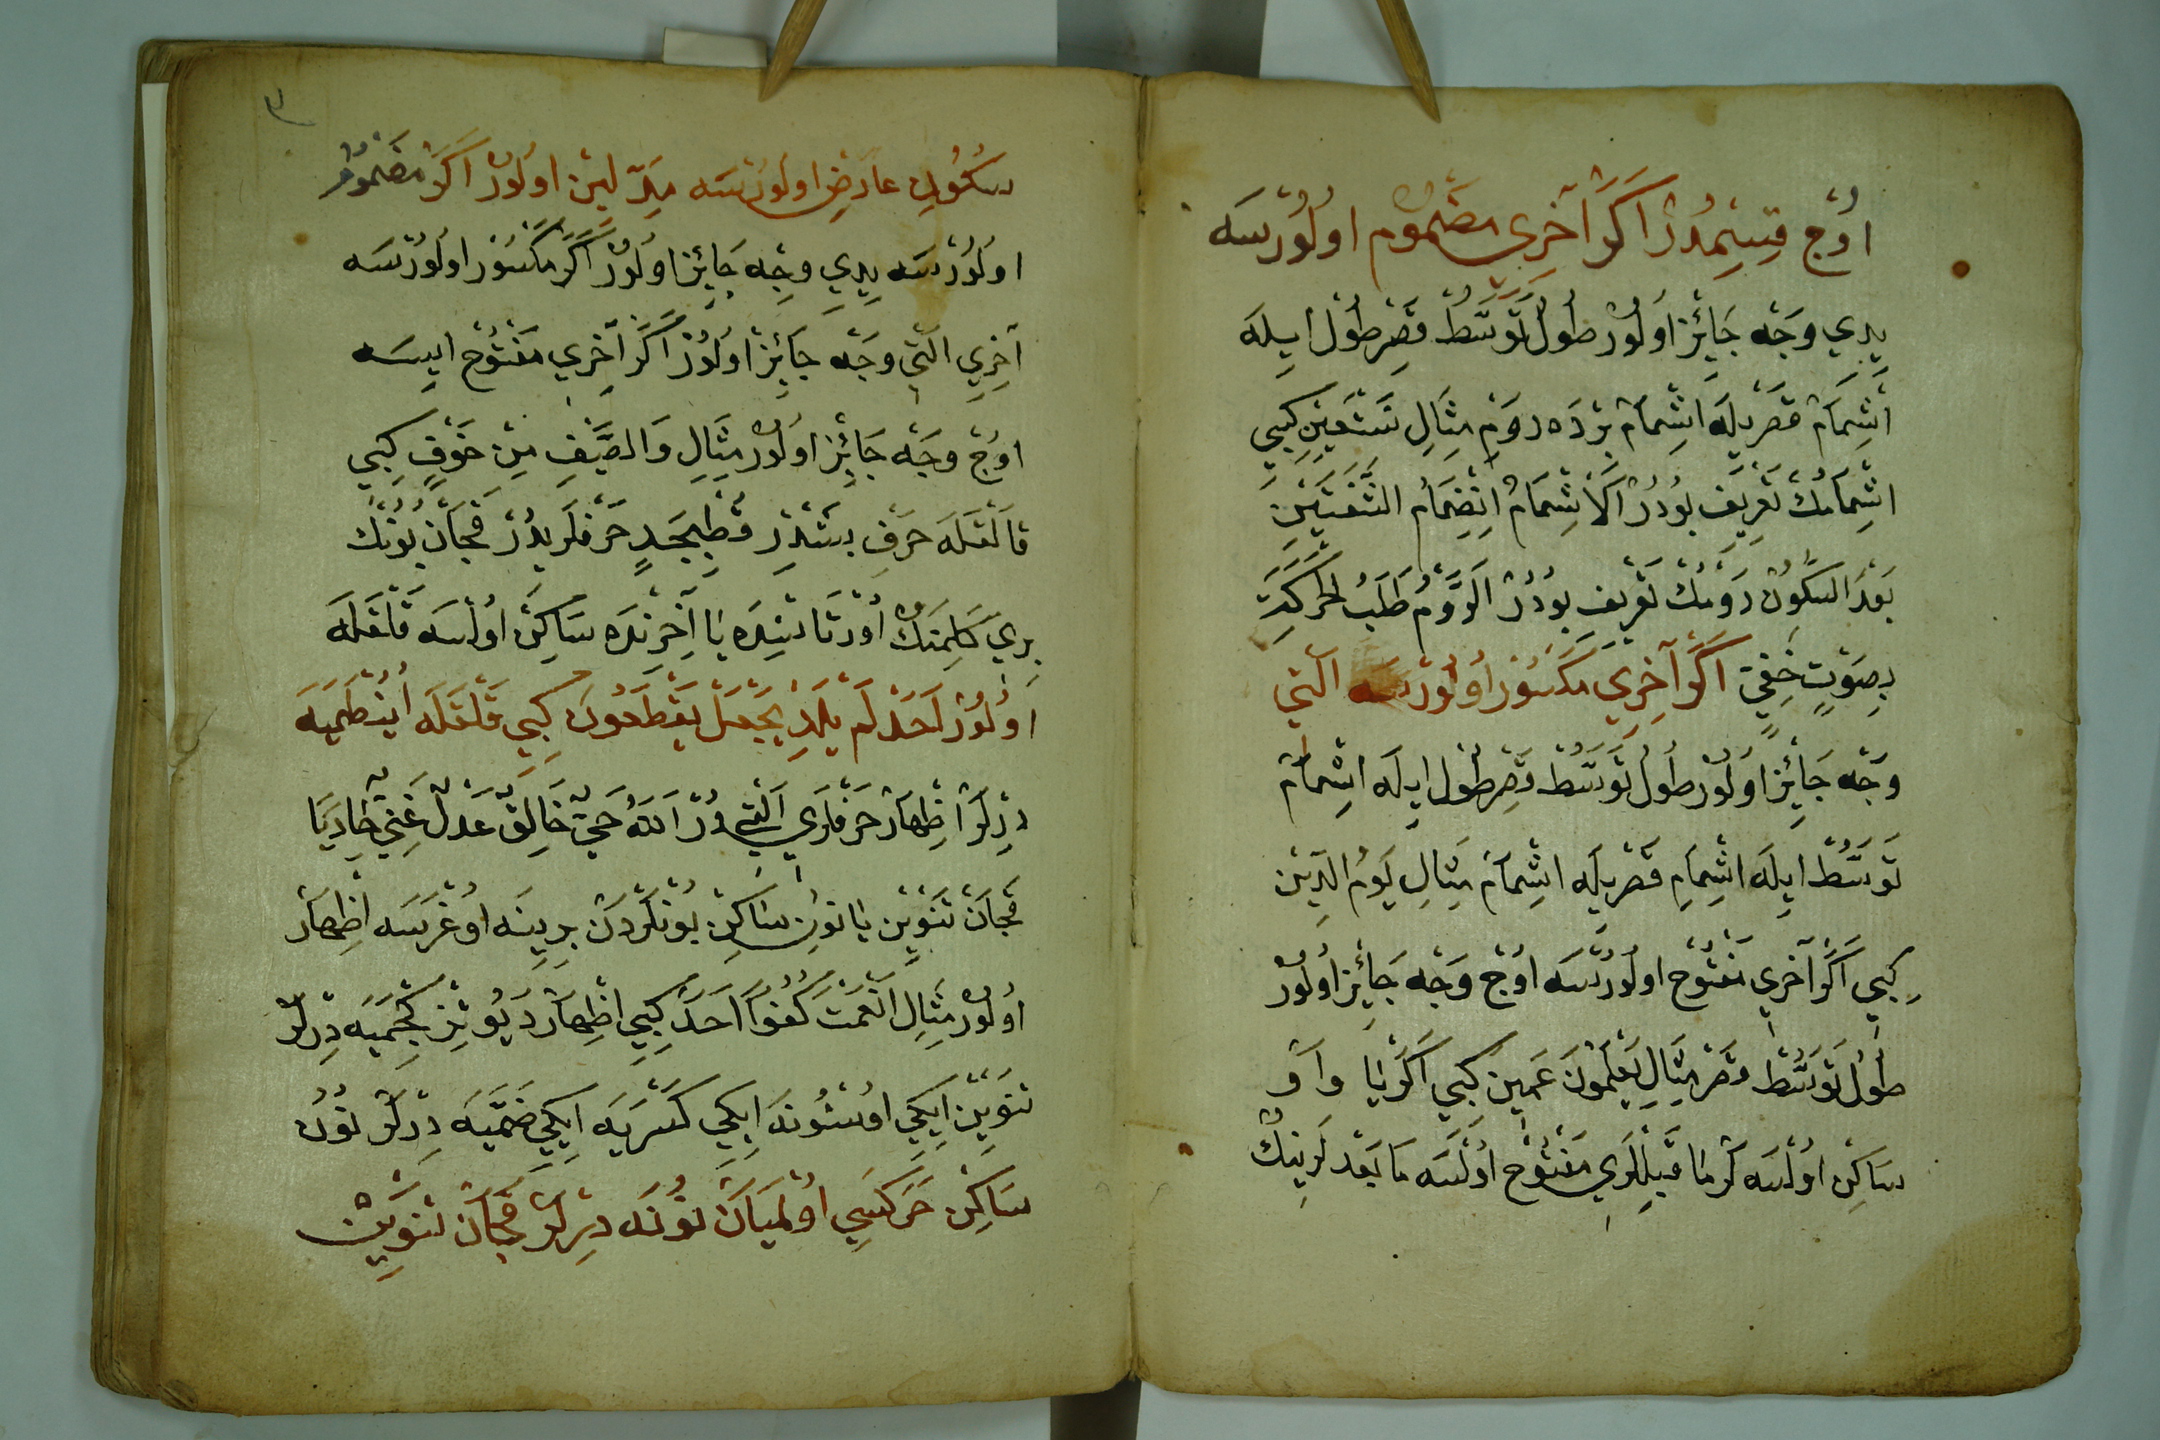 اوُچ قِسِمدُرْ اَكَرْ آخِرِي مَضْمُوم اولُورْسَه
يِدِي وَجْه جَائِز اولُورْ طُولْ تَوَسُّطْ قَصِرْ طُولْ ايلَه
اِشْمَامْ قَصْرِيلَه اِشْمَامْ بِرْدَه رَوْمْ مِثَالِ نَسْتَعِينُ كِبِي
اشْمَامُكْ تَعْرِيفِ بُودُرْ اَلْاِشْمَامُ اِنْضِمَامُ الشَّفَتَيْنِ
بَعْدَ السُّكُونِ رَوْمُكْ تَعْرِيفِ بُودُرْ اَلرَّوْمُ طَلَبُ الْحَرَكَةِ
بِصَوْتٍ خَفِيٍّ اَكَرْ آخِرِي مَكْسُورْ اولُورْسَه الْتِي
وَجْه جَائِز اولُورْ طُولْ تَوَسُّطْ قَصِرْ طُولْ ايلَه اشْمَامْ
تَوَسُّطْ ايلَه اشْمَامِ قَصْرِيلَه اشْمَامْ مِثَالِ يَوْمِ الدِّينْ
كِبِي اَكَرْ آخِرِي مَفْتُوح اولُورْسَه اوُچ وَجْه جَائِز اولُورْ
طُولْ تَوَسُّطْ قَصْرْ مِثَالِ يَعْلَمُونَ عَمِينَ كِبِي اَكَرْ يَا وَاوْ
سَاكِنْ اولْسَه لَرْ مَا قَبِلْلَرِي مَفْتُوح اولْسَه مَا بَعْدَلَرِينِكْ
٣
سُكُونِ عَارِضِ اولُورْسَه مَدِّ لِينْ اولُورْ اَكَرْ مَضْمُومْ
اولُورْسَه يِدِي وَجِه جَائِز اولُورْ اَكَرْ مَكْسُورْ اولُورْسَه
آخِرِي الْتِي وَجْه جَائِز اولُورْ اَكَرْ آخِرِي مَفْتُوح ايسَه
اوُچْ وَجْه جَائِز اولُورْ مِثَالِ وَالصَّيْفِ مِنْ خَوْفٍ كِبِي
قَالْقَلَه حَرْفِ بِشْدِرْ قُطْبِجَدٍ حَرْفْلَرِيدُرْ قَچَانْ بُونْكْ
بِرِي كَلِمَنِكْ اوُرْتَاسِنْدَه يَا آخِرِنْدَه سَاكِنْ اولْسَه قَلْقَلَه
اولُورْ لَحَدْ لَمْ يَلِدْ يَجْعَلْ يَقْطَعُونَ كِبِي قَلْقَلَه اَيْنْطَمِيَه
دِرْلَرْ اِظْهَارْ حَرْفْلَرِي اَلْتِي دُرْ اَللّٰهُ حَيٌّ خَالِقٌ عَدْلٌ غَنِيٌّ هَادِيًا
قَچَانْ تَنْوِينْ يَا نُونِ سَاكِنْ بُونْلَرْدَنْ بِرِينَه اوُغْرَسَه اِظْهَارْ
اولُورْ مِثَالِ اَنْعَمْتَ كُفُوًا اَحَدٌ كِبِي اِظْهَارْ دَيُو تِيزْ كَچْمَيَه دِرْلَرْ
تَنْوِينْ اِيكِي اوُسْتُونَه اِيكِي كَسْرَيَه اِيكِي ضَمَّيَه دِرْلَرْ نُونْ
سَاكِنْ حَرَكَسِي اوُلْمَيَانْ نُونَه دِيرْلَرْ قَچَانْ تَنْوِينْ